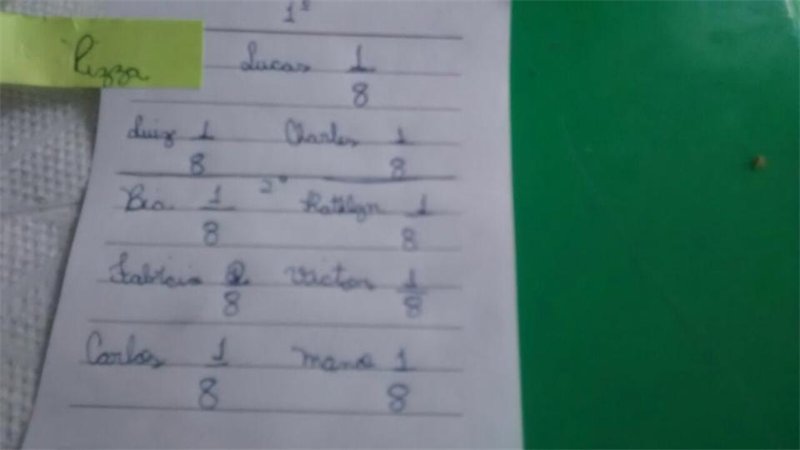 1º
Pizza Lucas 1/8
Luiz 1/8 Charles 1/8
2º
Bia 1/8 Katslyn 1/8
Fabricio 2/8 Victor 1/8
Carlos 1/8 1/8